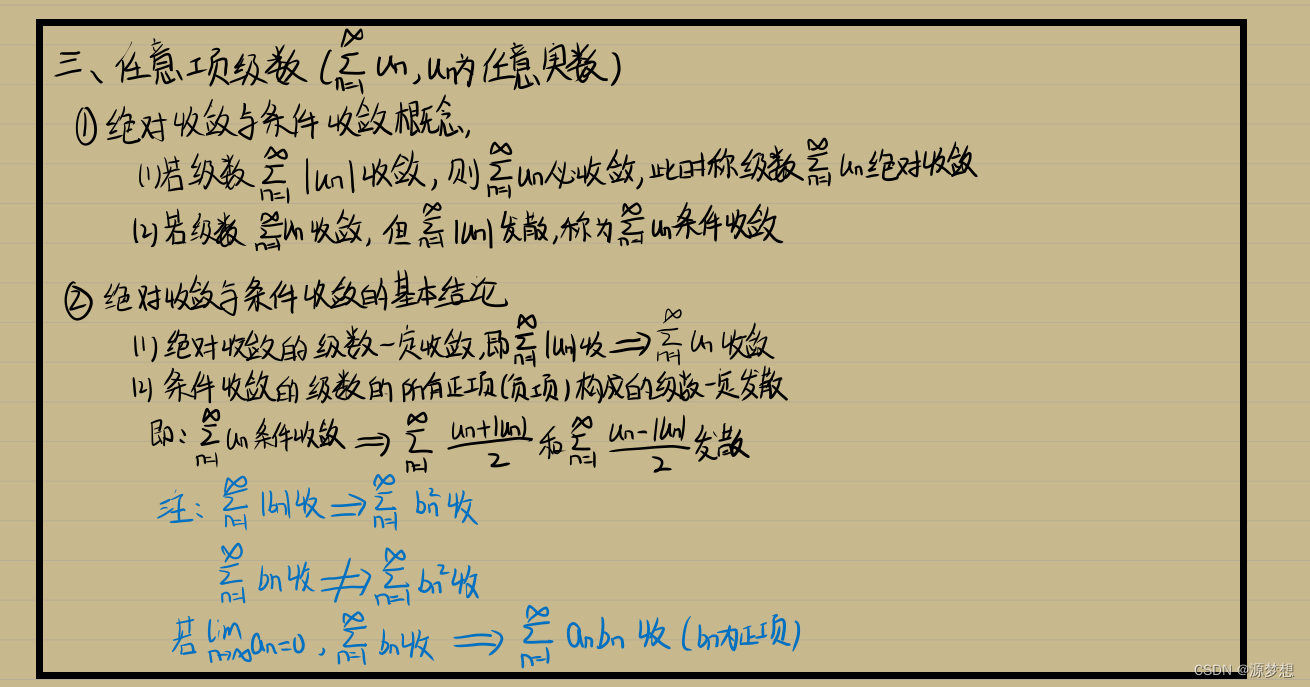 三、任意项级数 (∑_{n=1}^{∞} un, un为任意实数)
① 绝对收敛与条件收敛概念,
(1) 若级数 ∑_{n=1}^{∞} |un| 收敛, 则 ∑_{n=1}^{∞} un 必收敛, 此时称级数 ∑_{n=1}^{∞} un 绝对收敛
(2) 若级数 ∑_{n=1}^{∞} un 收敛, 但 ∑_{n=1}^{∞} |un| 发散, 称为 ∑_{n=1}^{∞} un 条件收敛
② 绝对收敛与条件收敛的基本结论
(1) 绝对收敛的级数一定收敛, 即 ∑_{n=1}^{∞} |un| 收 ⟹ ∑_{n=1}^{∞} un 收敛
(2) 条件收敛的级数的所有正项(负项)构成的级数一定发散
即: ∑_{n=1}^{∞} un 条件收敛 ⟹ ∑_{n=1}^{∞} (un+|un|)/2 和 ∑_{n=1}^{∞} (un-|un|)/2 发散
注: ∑_{n=1}^{∞} |bn| 收 ⟹ ∑_{n=1}^{∞} bn² 收
∑_{n=1}^{∞} bn 收 ⇏ ∑_{n=1}^{∞} bn² 收
若 lim_{n→∞} an=0, ∑_{n=1}^{∞} bn 收 ⟹ ∑_{n=1}^{∞} anbn 收 (bn为正项)
CSDN @源梦想